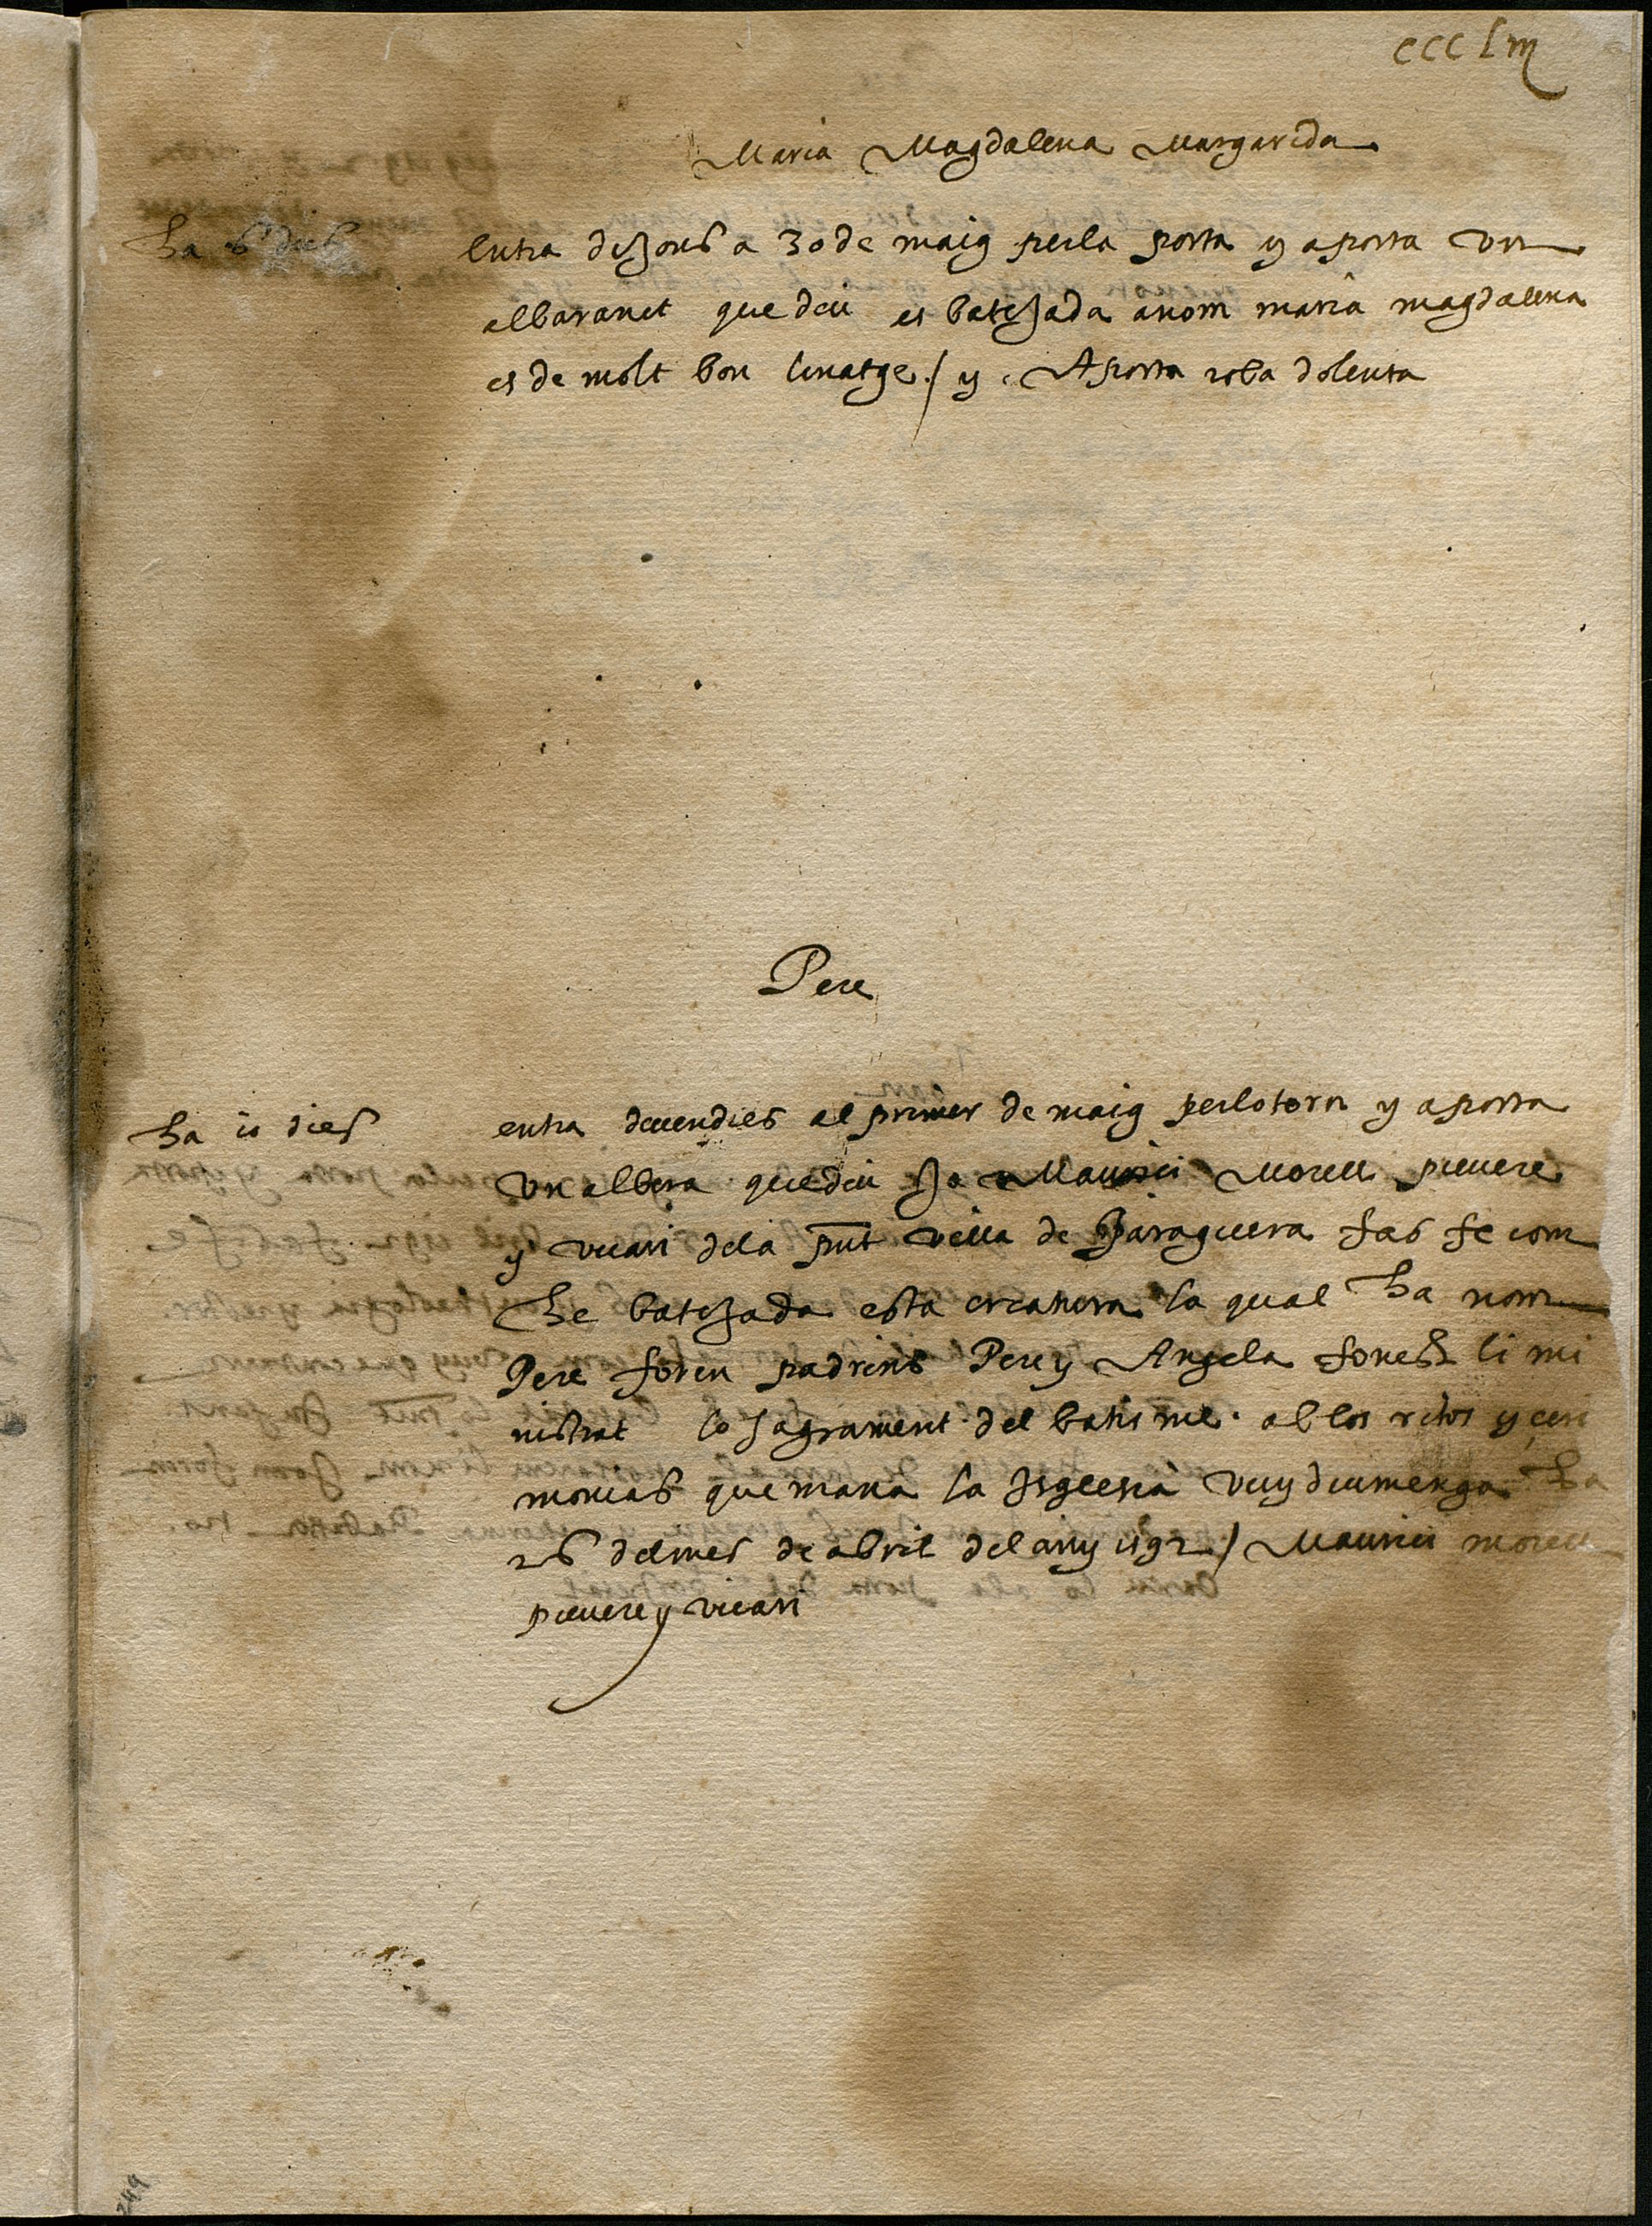 ccclm
Maria Magdalena Margarida
ha 6 dies
entra dijous a 30 de maig perla porta y aporta vn
albaranet que diu es batejada anom maria magdalena
es de molt bon linatge / y Aporta roba dolenta
Pere
ha 10 dies
entra diuendres al primer de maig perlo torn y aporta
vn albera que diu Jo Maurici Morell preuere
y vicari dela pnt villa de Jaraguera fas fe com
he batejada esta creatura la qual ha nom
Pere foren padrins Pere y Angela fonch li mi
nistrat lo sagrament del batisme ab los ritos y ceri
monias que mana la Isglesia vuy diumenga ha
26 del mes de abril del any 1592 / Maurici morell
preuere y vicari
249